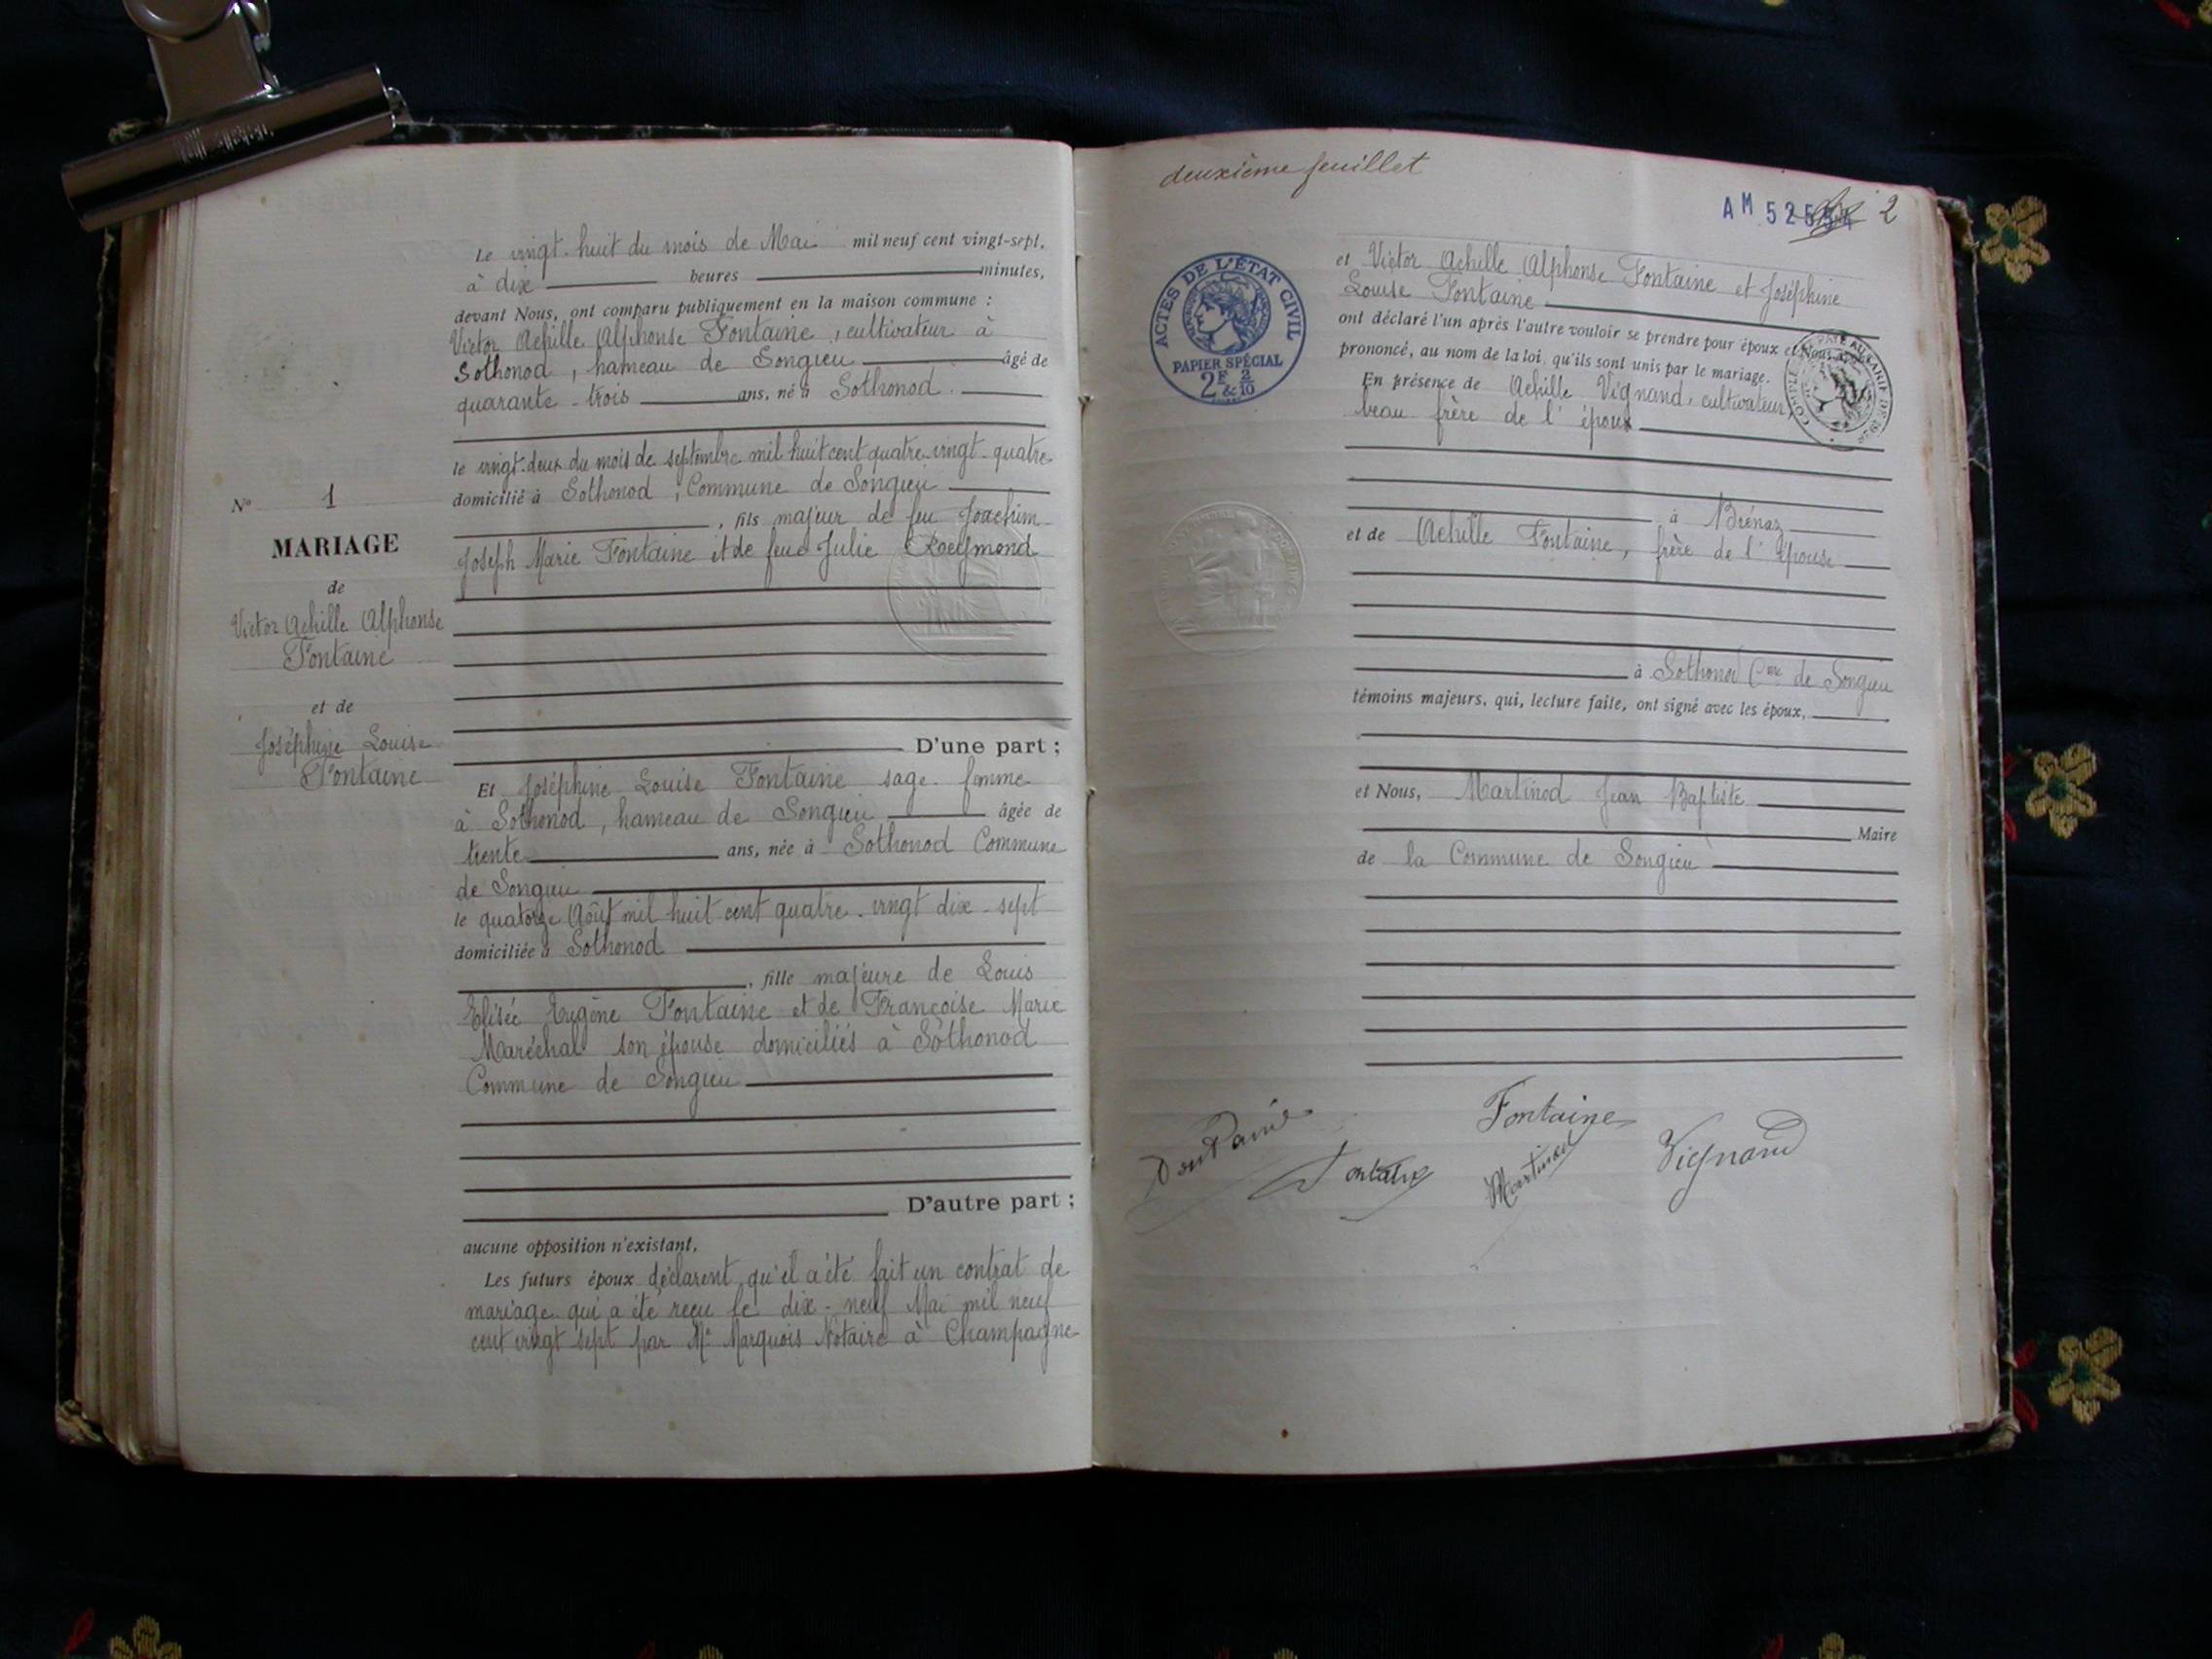 Le vingt-huit du mois de Mai mil neuf cent vingt-sept,
à dix heures minutes,
devant Nous, ont comparu publiquement en la maison commune :
Victor Achille Alphonse Fontaine, cultivateur à
Sothonod, hameau de Songieu âgé de
quarante-trois ans, né à Sothonod.
le vingt-deux du mois de septembre mil huit cent quatre-vingt-quatre
domicilié à Sothonod, Commune de Songieu
, fils majeur de feu Joachim
Joseph Marie Fontaine et de feue Julie
N° 1
MARIAGE
de
Victor Achille Alphonse
Fontaine
et de
Joséphine Louise
Fontaine
D'une part ;
Et Joséphine Louise Fontaine sage-femme
à Sothonod, hameau de Songieu âgée de
trente ans, née à Sothonod Commune
de Songieu
le quatorze Août mil huit cent quatre-vingt dix-sept
domiciliée à Sothonod
, fille majeure de Louis
Elisée Eugène Fontaine et de Françoise Marie
Maréchal son épouse domiciliés à Sothonod
Commune de Songieu
D'autre part ;
aucune opposition n'existant,
Les futurs époux déclarent qu'il a été fait un contrat de
mariage qui a été reçu le dix-neuf Mai mil neuf
cent vingt sept par Me Marquois Notaire à Champagne
deuxième feuillet
AM 2
ACTES DE L'ÉTAT CIVIL
PAPIER SPÉCIAL
2F & 2/10
et Victor Achille Alphonse Fontaine et Joséphine
Louise Fontaine
ont déclaré l'un après l'autre vouloir se prendre pour époux et Nous avons
prononcé, au nom de la loi, qu'ils sont unis par le mariage.
En présence de Achille Vignand, cultivateur,
beau frère de l'époux
à Brénaz
et de Achille Fontaine, frère de l'épouse
à Sothonod Cne de Songieu
témoins majeurs, qui, lecture faite, ont signé avec les époux,
et Nous, Martinod Jean Baptiste
Maire
de la Commune de Songieu
Fontaine
Fontaine
Martinod
Vignand